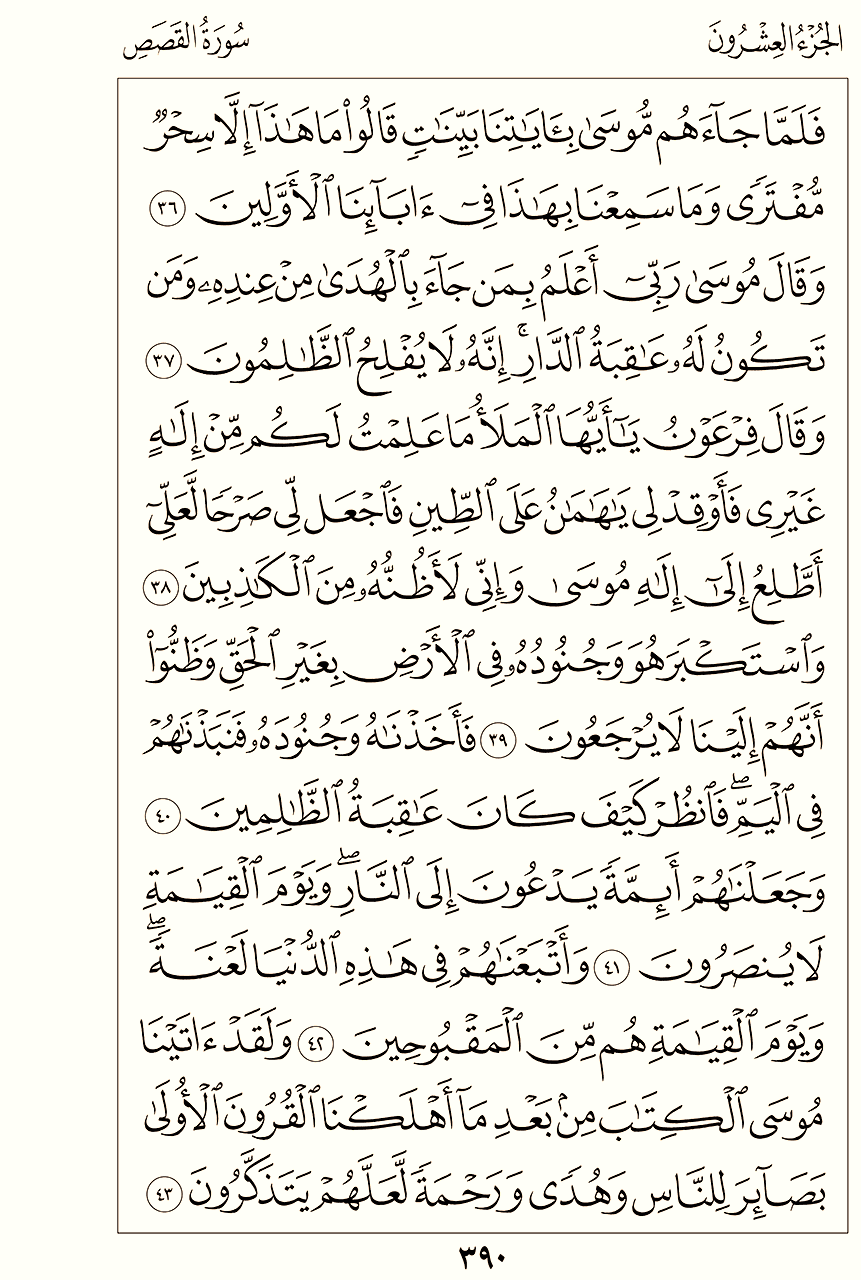 الجُزْءُ العِشْرُونَ
سُورَةُ القَصَصِ
فَلَمَّا جَآءَهُم مُّوسَىٰ بِـَٔايَـٰتِنَا بَيِّنَـٰتٍ قَالُوا۟ مَا هَـٰذَآ إِلَّا سِحْرٌ
مُّفْتَرًى وَمَا سَمِعْنَا بِهَـٰذَا فِىٓ ءَابَآئِنَا ٱلْأَوَّلِينَ ٣٦
وَقَالَ مُوسَىٰ رَبِّىٓ أَعْلَمُ بِمَن جَآءَ بِٱلْهُدَىٰ مِنْ عِندِهِۦ وَمَن
تَكُونُ لَهُۥ عَـٰقِبَةُ ٱلدَّارِ ۚ إِنَّهُۥ لَا يُفْلِحُ ٱلظَّـٰلِمُونَ ٣٧
وَقَالَ فِرْعَوْنُ يَـٰٓأَيُّهَا ٱلْمَلَأُ مَا عَلِمْتُ لَكُم مِّنْ إِلَـٰهٍ
غَيْرِى فَأَوْقِدْ لِى يَـٰهَـٰمَـٰنُ عَلَى ٱلطِّينِ فَٱجْعَل لِّى صَرْحًا لَّعَلِّىٓ
أَطَّلِعُ إِلَىٰٓ إِلَـٰهِ مُوسَىٰ وَإِنِّى لَأَظُنُّهُۥ مِنَ ٱلْكَـٰذِبِينَ ٣٨
وَٱسْتَكْبَرَ هُوَ وَجُنُودُهُۥ فِى ٱلْأَرْضِ بِغَيْرِ ٱلْحَقِّ وَظَنُّوٓا۟
أَنَّهُمْ إِلَيْنَا لَا يُرْجَعُونَ ٣٩ فَأَخَذْنَـٰهُ وَجُنُودَهُۥ فَنَبَذْنَـٰهُمْ
فِى ٱلْيَمِّ ۖ فَٱنظُرْ كَيْفَ كَانَ عَـٰقِبَةُ ٱلظَّـٰلِمِينَ ٤٠
وَجَعَلْنَـٰهُمْ أَئِمَّةً يَدْعُونَ إِلَى ٱلنَّارِ ۖ وَيَوْمَ ٱلْقِيَـٰمَةِ
لَا يُنصَرُونَ ٤١ وَأَتْبَعْنَـٰهُمْ فِى هَـٰذِهِ ٱلدُّنْيَا لَعْنَةً ۖ
وَيَوْمَ ٱلْقِيَـٰمَةِ هُم مِّنَ ٱلْمَقْبُوحِينَ ٤٢ وَلَقَدْ ءَاتَيْنَا
مُوسَى ٱلْكِتَـٰبَ مِنۢ بَعْدِ مَآ أَهْلَكْنَا ٱلْقُرُونَ ٱلْأُولَىٰ
بَصَآئِرَ لِلنَّاسِ وَهُدًى وَرَحْمَةً لَّعَلَّهُمْ يَتَذَكَّرُونَ ٤٣
٣٩٠